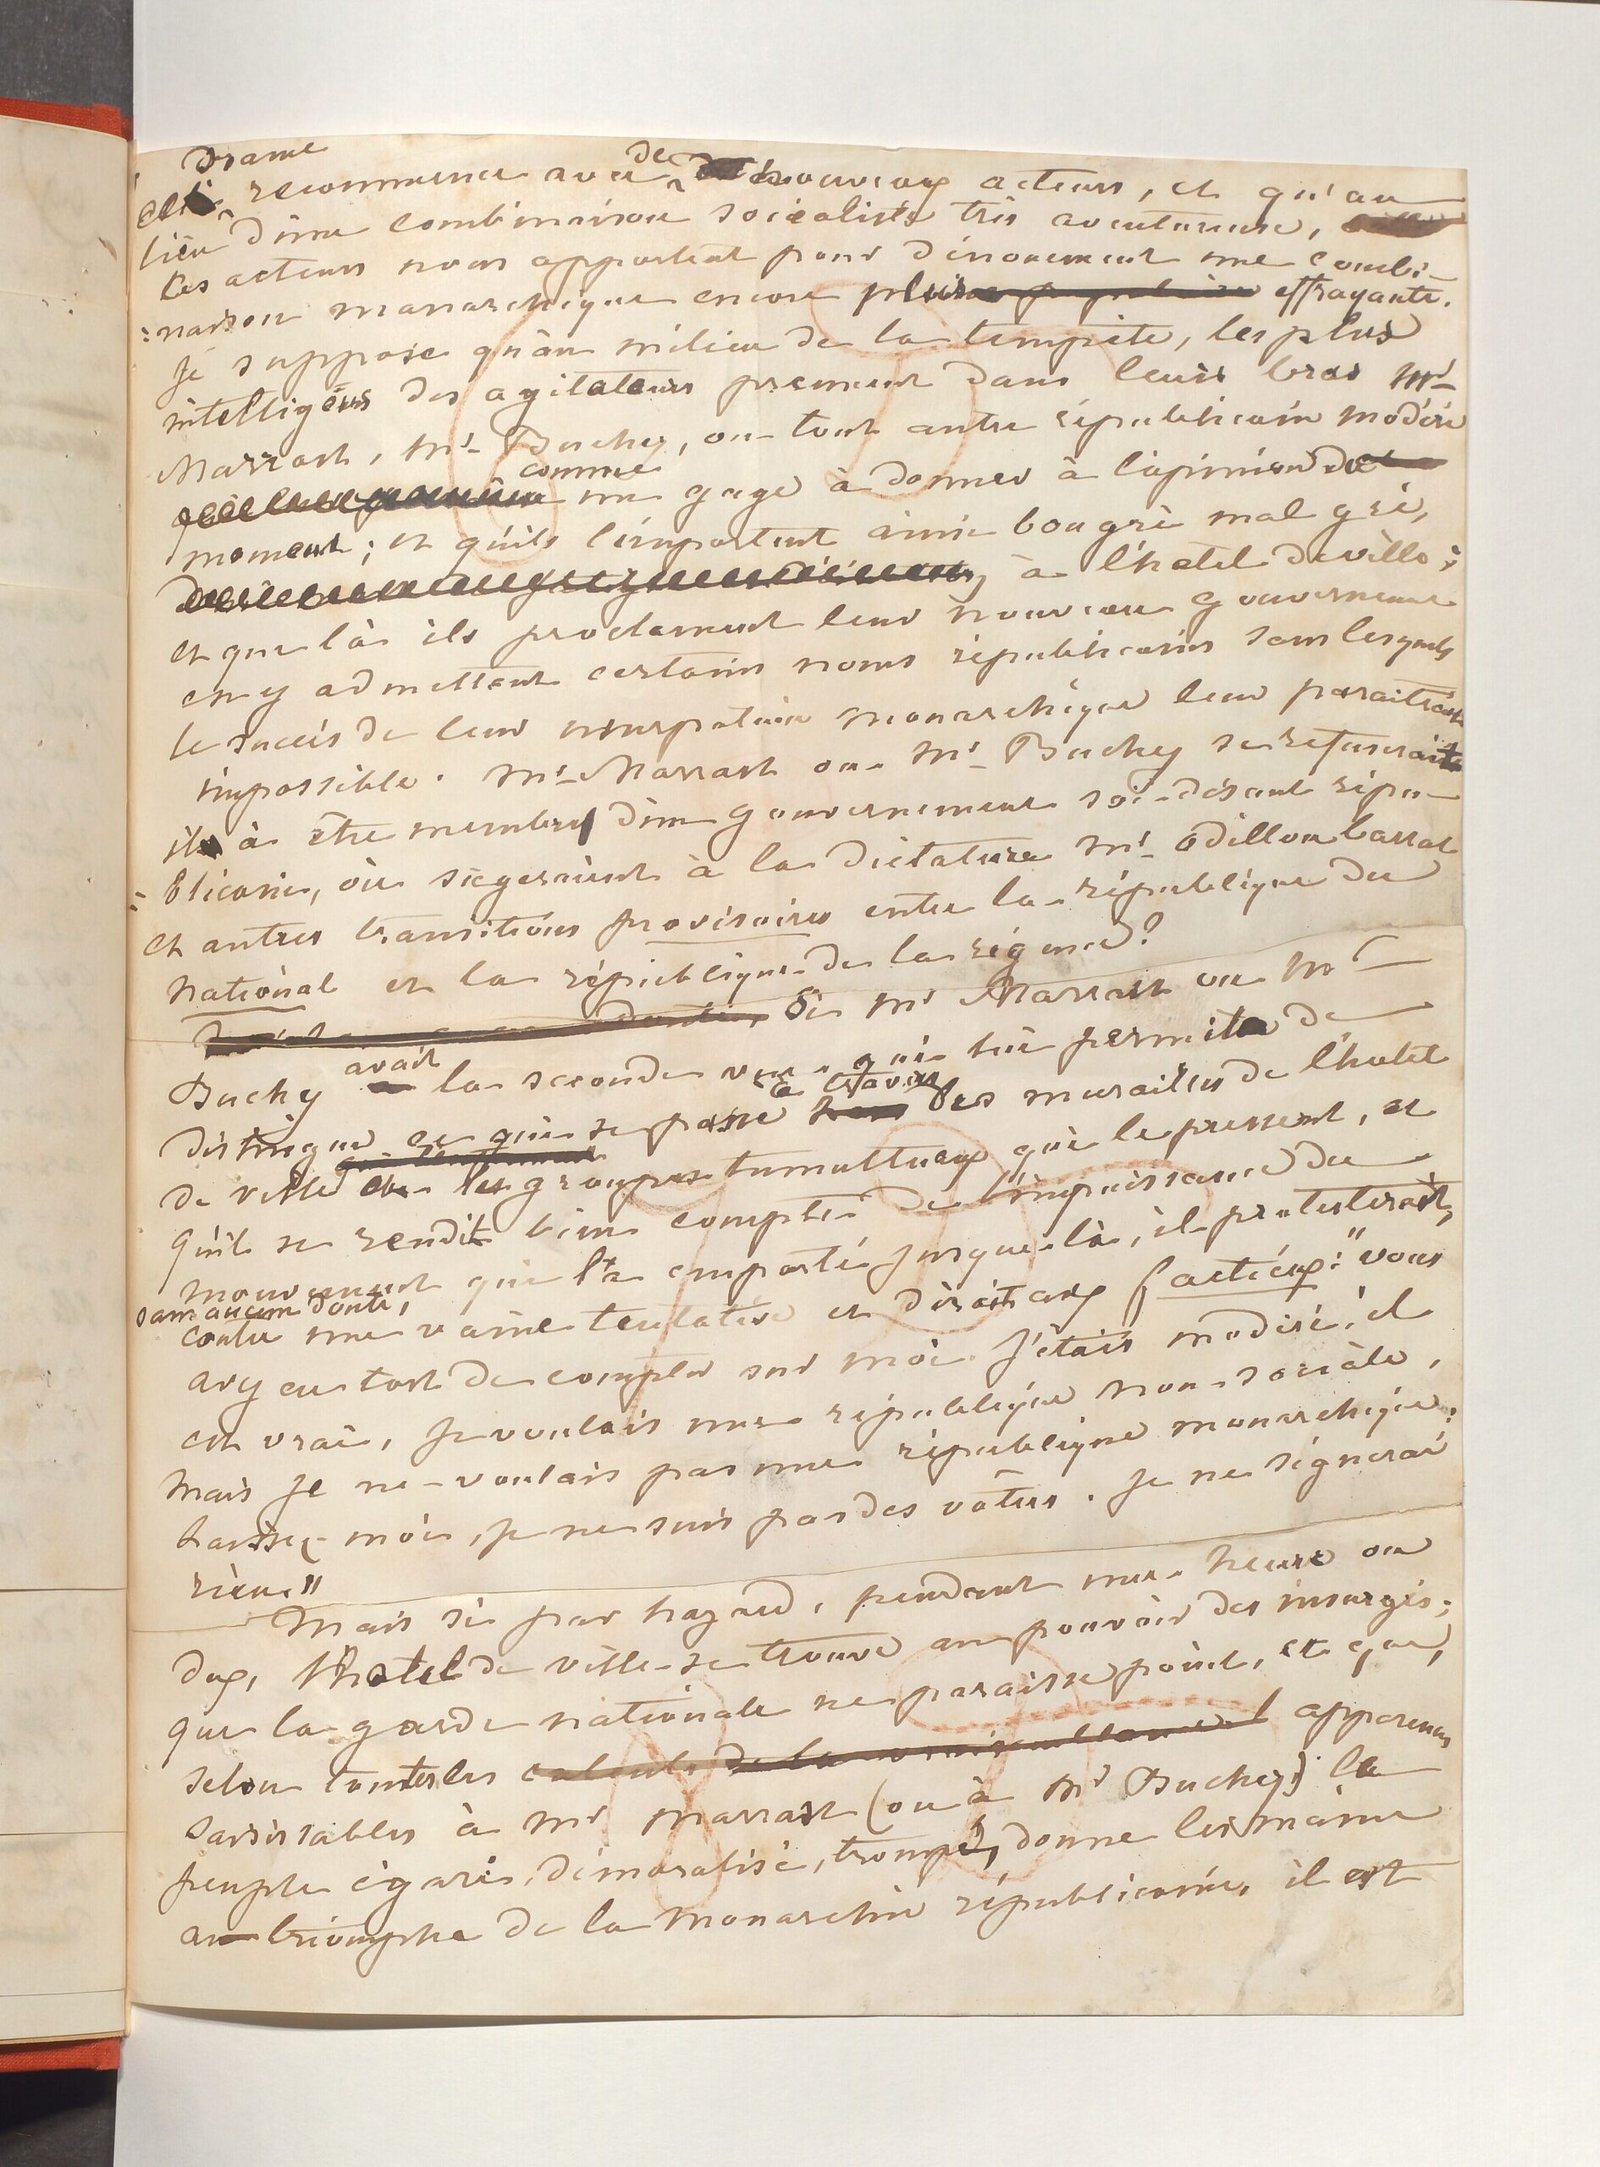 drame
recommence avec de nouveaux acteurs, et qu'au
lieu d'une combinaison socialiste très aventureuse,
les acteurs nous apportent pour dénouement une combi-
=naison monarchique encore plus effrayante.
Je suppose qu'au milieu de la tempête, les plus
intelligens des agitateurs prennent dans leurs bras Mr
Marrast, Mr Buchez, ou tout autre républicain modéré
comme
un gage à donner à l'opinion du
moment; et qu'ils l'emportent ainsi bon gré mal gré,
à l'hotel de ville;
et que là ils proclament leur nouveau gouvernement
en y admettant certains noms républicains sans lesquels
le succès de leur usurpation monarchique leur paraitrait
impossible. Mr Marrast ou Mr Buchez se refuserait
il à être membre d'un gouvernement soi-disant répu-
=blicain, où siégeraient à la dictature Mr Odillon barrot
et autres transitions provisoires entre la république du
National et la république de la régence?
Si Mr Marrast ou Mr
Buchez avait la seconde vue qui lui permit de
distinguer ce qui se passe à travers les murailles de l'hotel
de ville et les groupes tumultueux qui le pressent, et
qu'il se rendit bien compte de l'impuissance du
mouvement qui l'a emporté jusque là, il protesterait,
sans aucun doute,
contre une vaine tentative et dirait aux factieux: "vous
avez eu tort de compter sur moi. J'étais modéré, il
est vrai, je voulais une république non-sociale,
mais je ne voulais pas une république monarchique.
Laissez-moi, je ne suis pas des vôtres. Je ne signerai
rien."
Mais si par hazard, pendant une heure ou
deux, l'hotel de ville se trouve au pouvoir des insurgés;
que la garde nationale ne paraisse point, et que,
selon toutes les calculs de la vraisemblance apparences
saisissables à Mr Marrast (ou à Mr Buchez) le
peuple égaré, démoralisé, trompé, donne les mains
au triomphe de la monarchie républicaine, il est